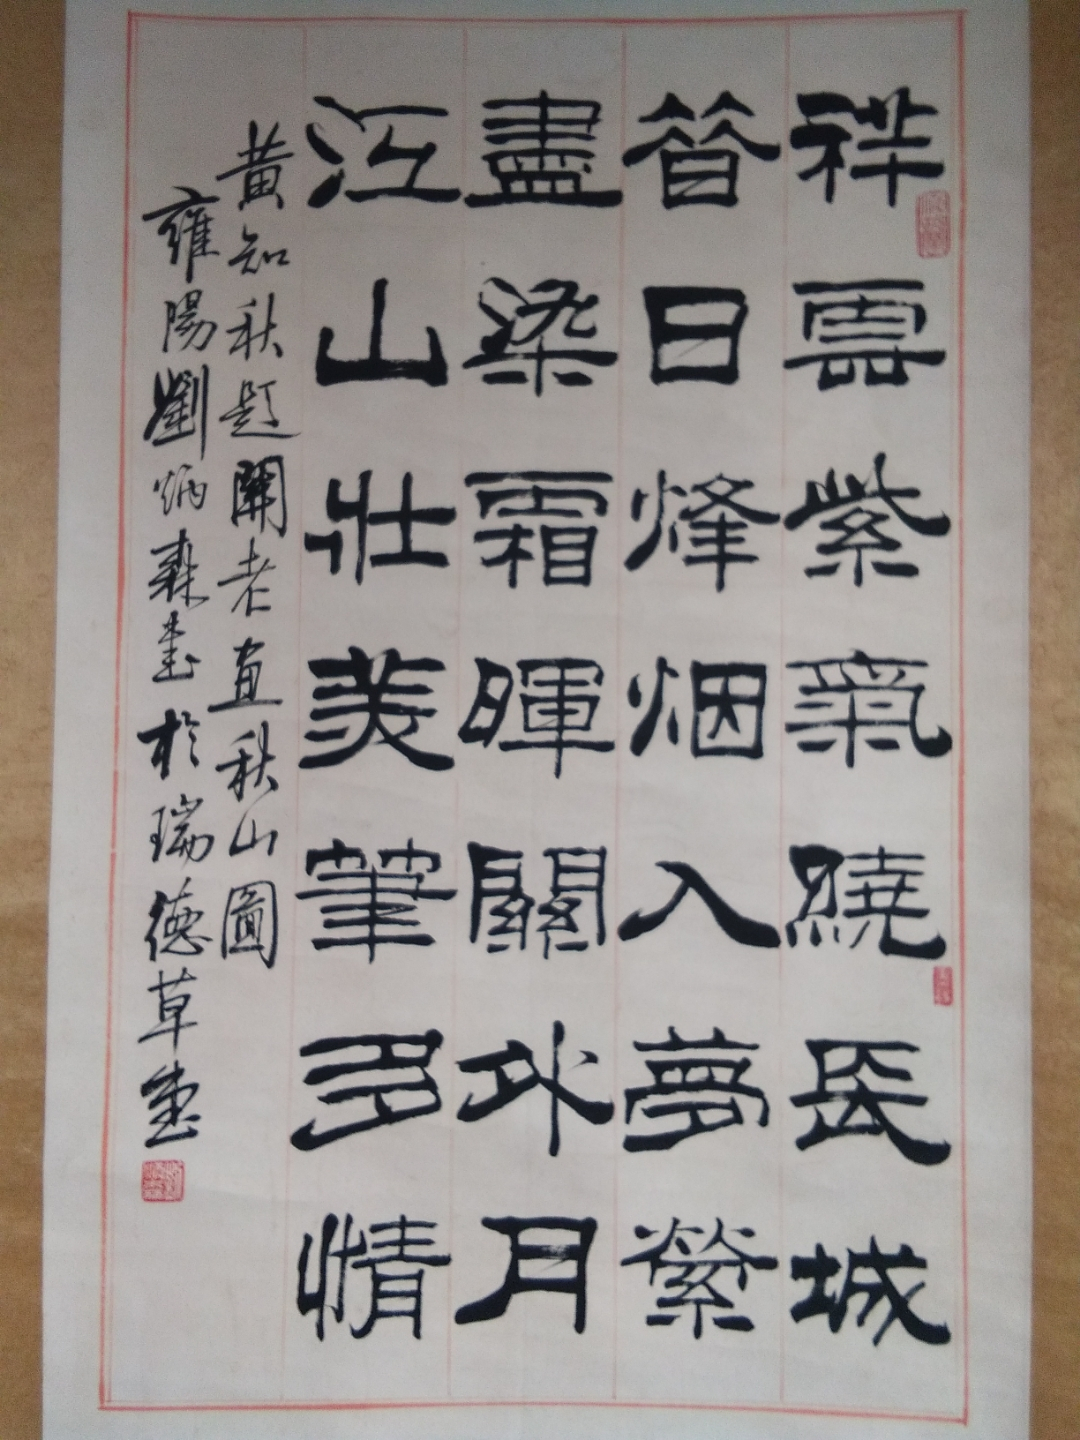 祥雲紫氣繞長城
昝日烽烟入夢縈
盡染霜暉關外月
江山壯美筆多情
黃知秋題關老画秋山圖
雍陽劉炳森書於瑞德草堂